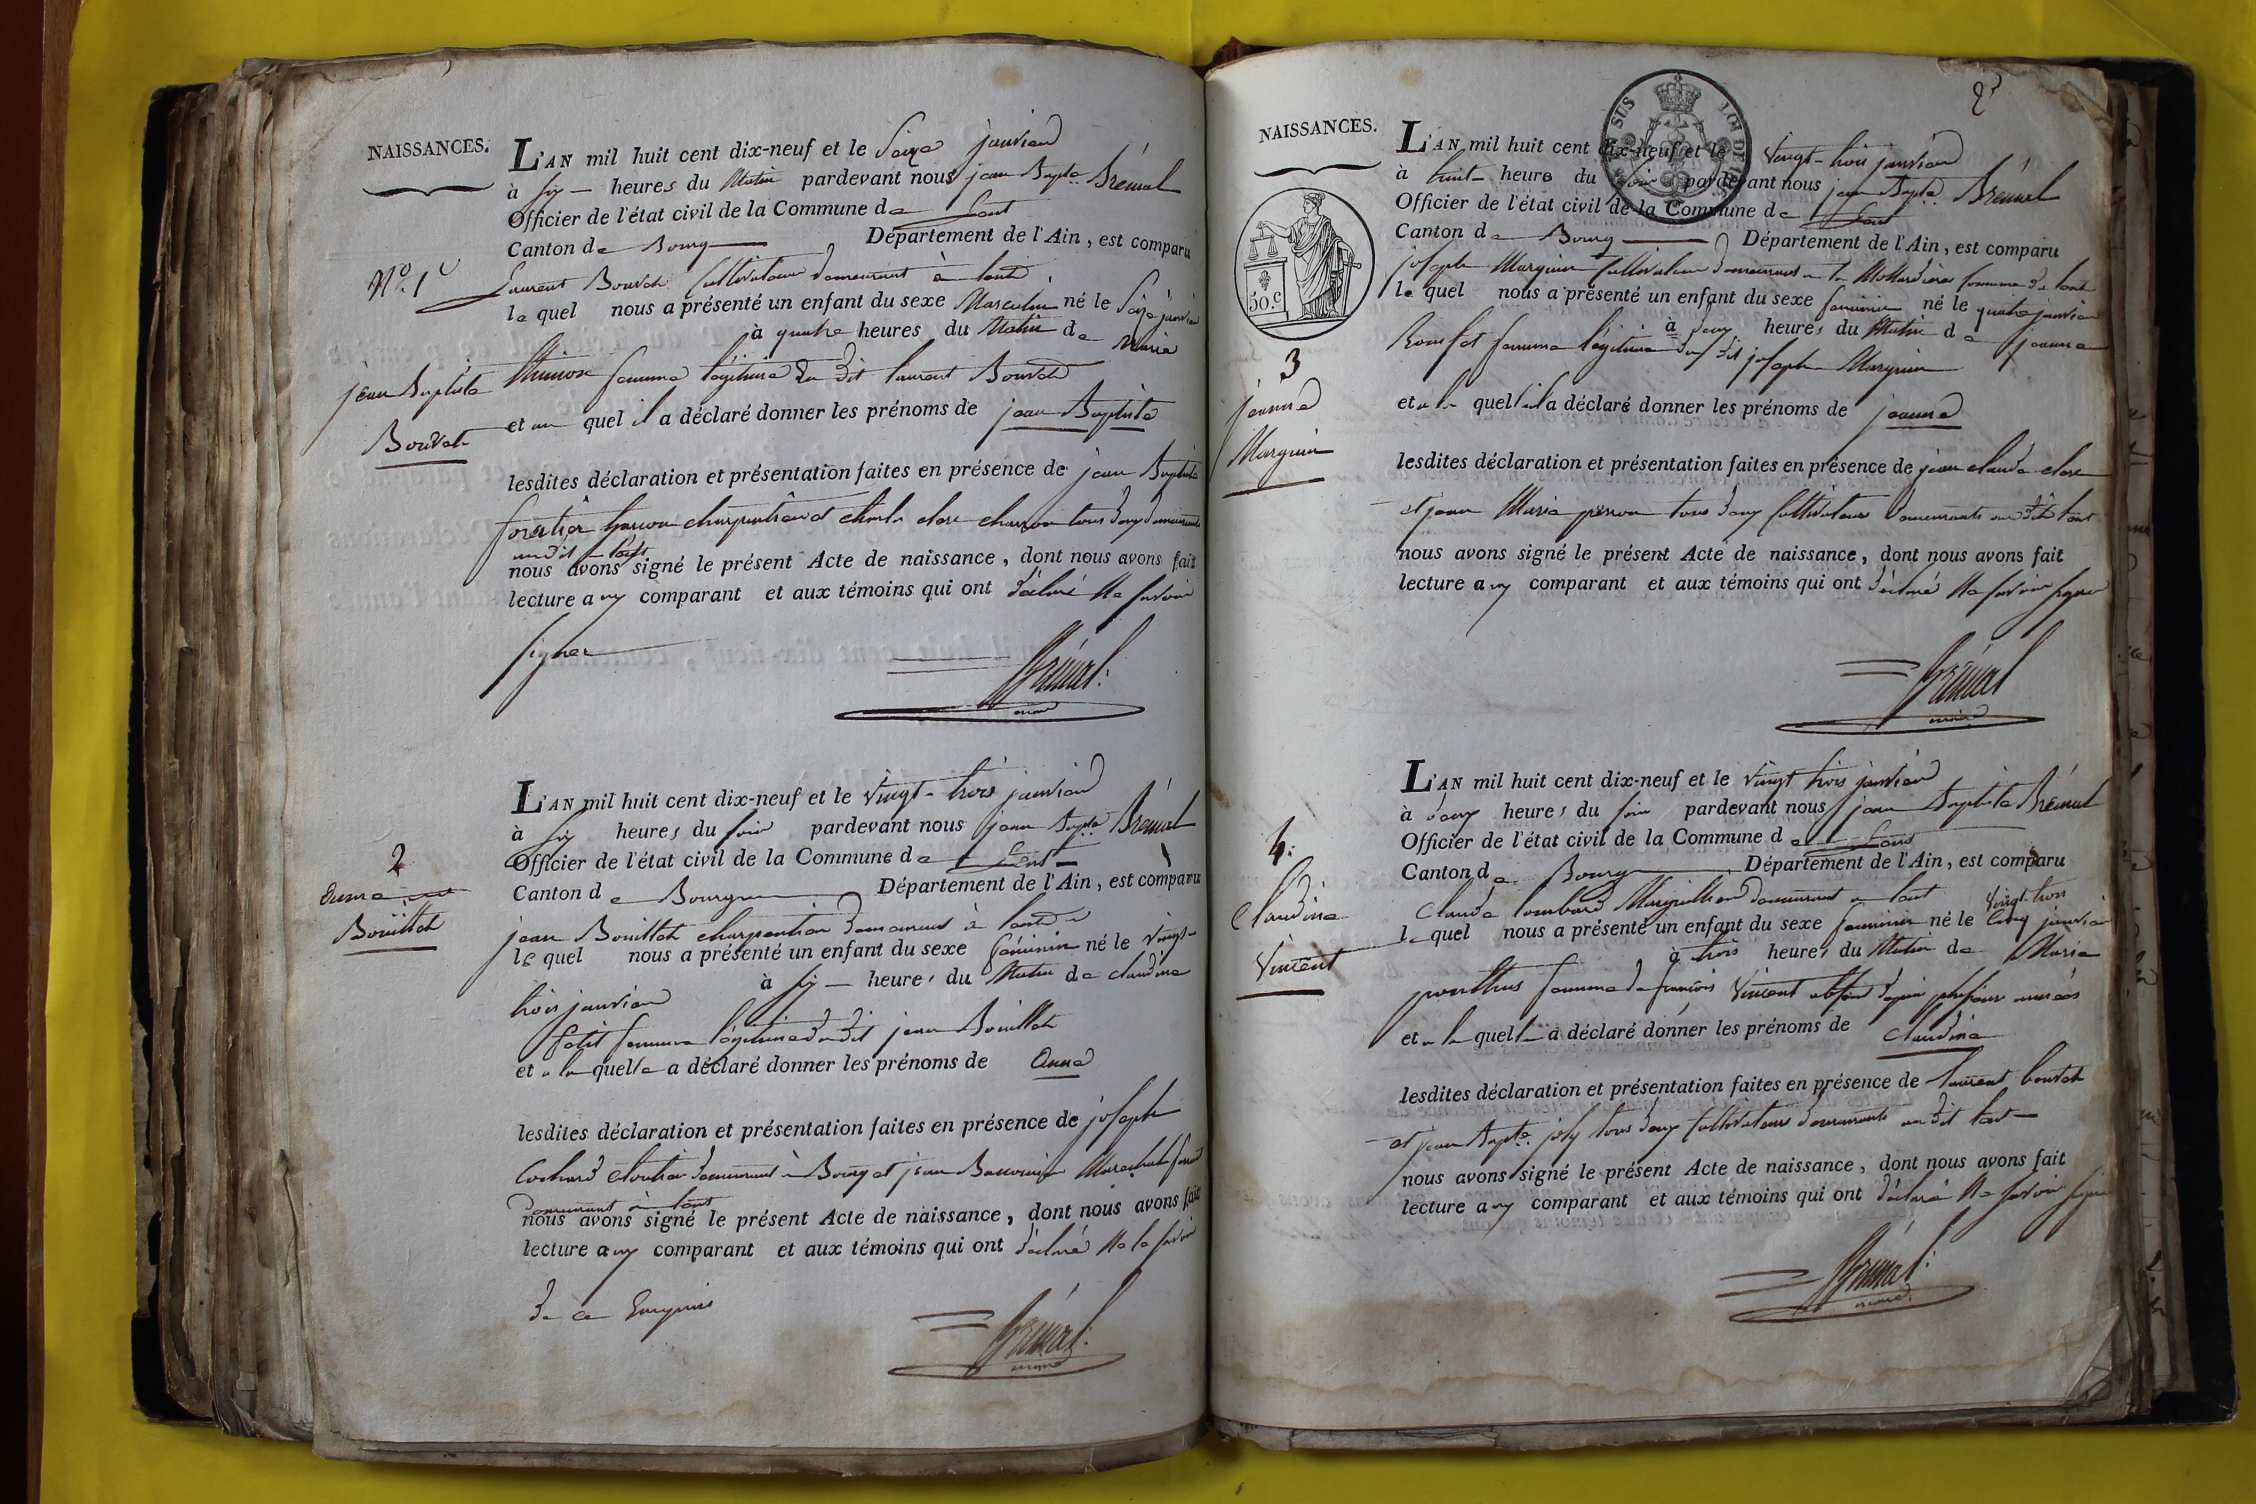 NAISSANCES.
L'AN mil huit cent dix-neuf et le Seize janvier
à six heures du Matin pardevant nous jean Bapte Brémal
Officier de l'état civil de la Commune de
Canton de Bourg Département de l'Ain, est comparu
N°. 1
Laurent Bouvet Cultivateur demeurant à
le quel nous a présenté un enfant du sexe Masculin né le Seize janvier
à quatre heures du Matin de Marie
femme légitime du dit laurent Bouvet
jean Baptiste
Bouvet
et au quel il a déclaré donner les prénoms de jean Baptiste
lesdites déclaration et présentation faites en présence de jean Baptiste
charpentier et tous deux demeurants
audit
nous avons signé le présent Acte de naissance, dont nous avons fait
lecture aux comparant et aux témoins qui ont déclaré Ne savoir
signer
Brémal
maire
L'AN mil huit cent dix-neuf et le vingt-trois janvier
à six heures du soir pardevant nous jean Bapte Brémal
Officier de l'état civil de la Commune de
Canton de Bourg Département de l'Ain, est comparu
2
Anne
Bouillet
jean Bouillet charpentier demeurant à
le quel nous a présenté un enfant du sexe féminin né le vingt-
trois janvier à six heures du Matin de claudine
petit femme légitime du dit jean Bouillet
et a la quelle a déclaré donner les prénoms de Anne
lesdites déclaration et présentation faites en présence de joseph
Cochard demeurant à Bourg et jean Maréchal
demeurant à
nous avons signé le présent Acte de naissance, dont nous avons fait
lecture aux comparant et aux témoins qui ont déclaré Ne le savoir
de ce Enquis
Brémal
maire
2
NAISSANCES.
SUS LOI DE
L'AN mil huit cent dix-neuf et le vingt-trois janvier
à huit heure du soir pardevant nous jean Bapte Brémal
Officier de l'état civil de la Commune de
Canton de Bourg Département de l'Ain, est comparu
50.c
joseph Marguin Cultivateur demeurant a la Commune de
le quel nous a présenté un enfant du sexe féminin né le quatre janvier
à deux heures du Matin de jeanne
femme légitime du dit joseph Marguin
3
jeanne
Marguin
et a la quelle il a déclaré donner les prénoms de jeanne
lesdites déclaration et présentation faites en présence de jean claude
et jean Marie tous deux Cultivateurs demeurants audit
nous avons signé le présent Acte de naissance, dont nous avons fait
lecture aux comparant et aux témoins qui ont déclaré Ne savoir signer
Brémal
maire
L'AN mil huit cent dix-neuf et le vingt trois janvier
à deux heures du soir pardevant nous jean Baptiste Brémal
Officier de l'état civil de la Commune de
Canton de Bourg Département de l'Ain, est comparu
4.
Claudine
Vincent
Claude lombard demeurant a vingt trois
le quel nous a présenté un enfant du sexe féminin né le janvier
à trois heures du Matin de Marie
femme de françois Vincent absent depuis plusieurs années
et a la quelle a déclaré donner les prénoms de Claudine
lesdites déclaration et présentation faites en présence de laurent bouvet
et jean Bapte joly tous deux Cultivateurs demeurants audit
nous avons signé le présent Acte de naissance, dont nous avons fait
lecture aux comparant et aux témoins qui ont déclaré Ne savoir signer
Brémal
maire